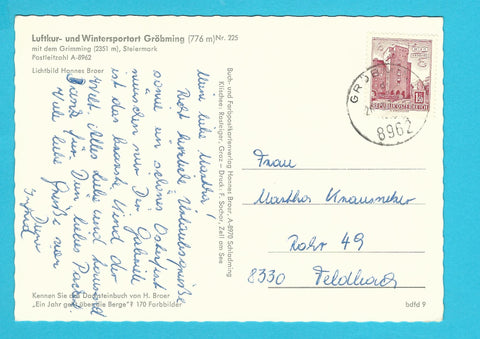 Luftkur- und Wintersportort Gröbming (776 m) Nr. 225
mit dem Grimming (2351 m), Steiermark
Postleitzahl A-8962
Lichtbild Hannes Broer
Meine liebe Martha!
Recht herzliche Urlaubsgrüße
sowie ein schönes Osterfest
wünschen wir Dir. Gabriele
ist das bravste Kind der
Welt. Alles Liebe und tausend
Dank für Dein liebes Packerl
Viele liebe Grüße von
Deiner
Ingrid
Kennen Sie das Dachsteinbuch von H. Broer
„Ein Jahr geht über die Berge"? 170 Farbbilder
Buch- und Farbpostkartenverlag Hannes Broer, A-8970 Schladming
Klischee: Reisinger, Graz – Druck: F. Sochor, Zell am See
GRÖB
8962
REPUBLIK ÖSTERREICH
Frau
Martha Knausneker
Rohr 49
8330 Feldbach
bdfd 9